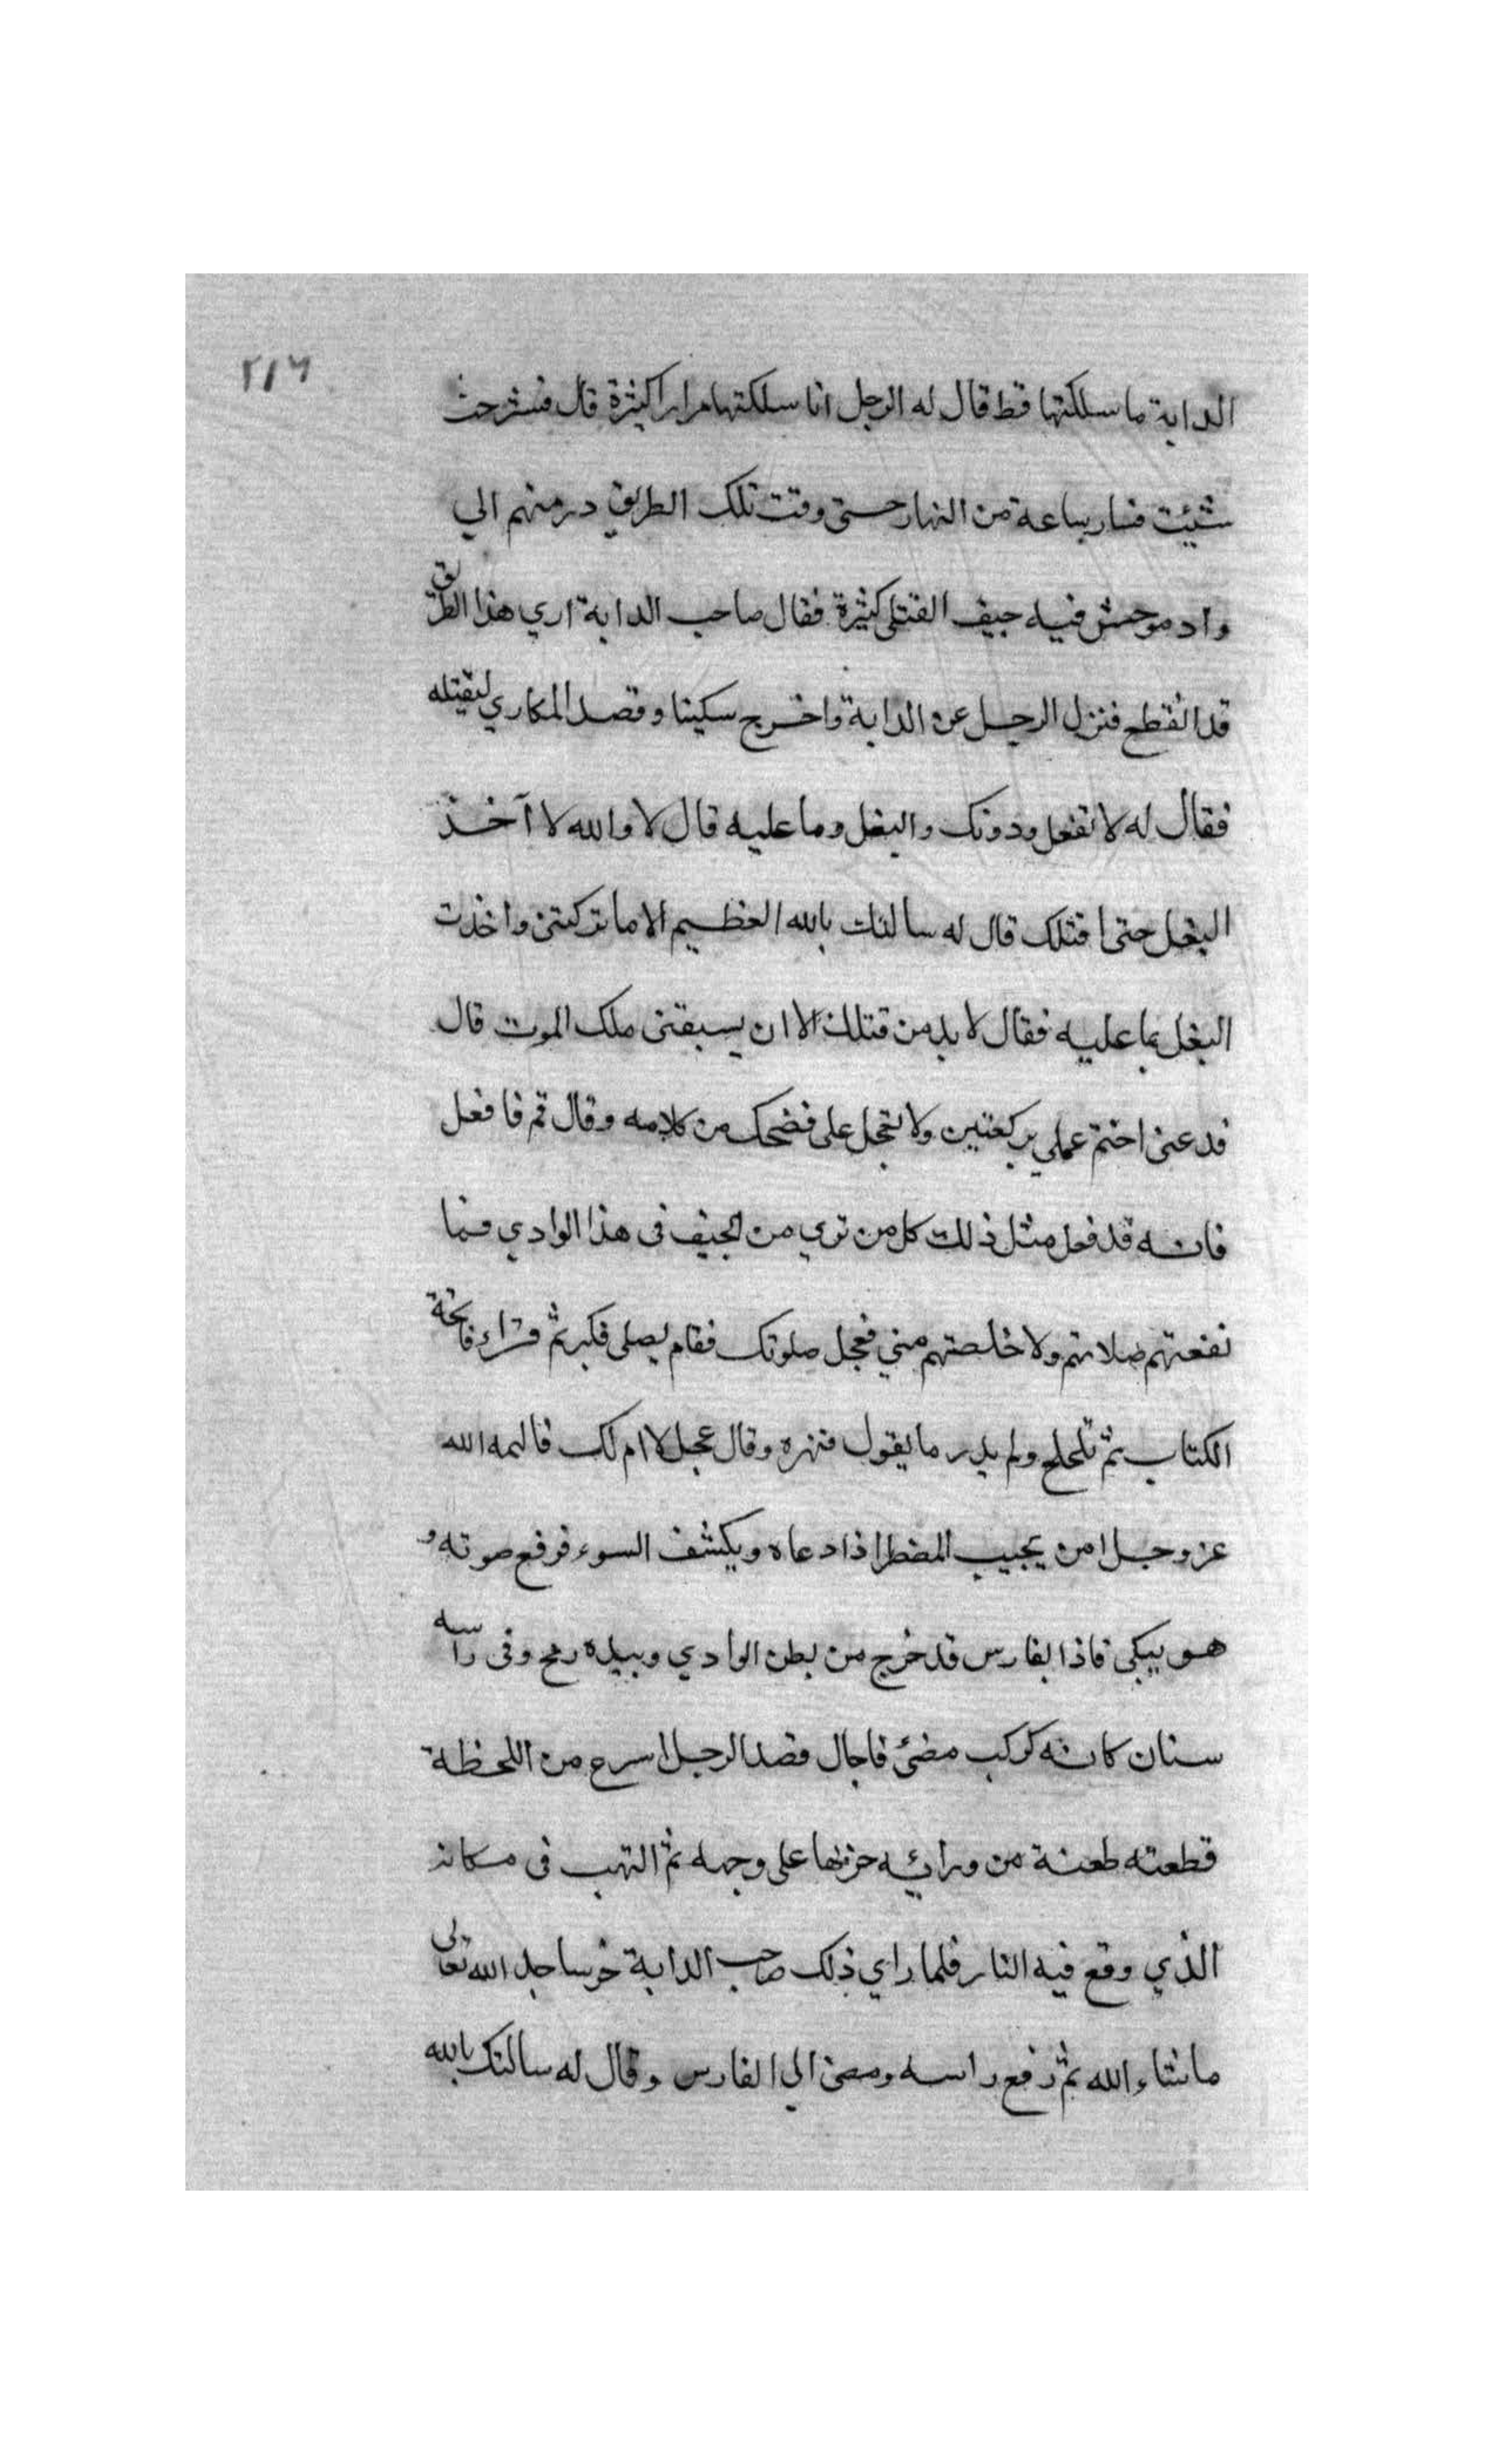 ٢١٦
الدابة ما سلكتها قط قال له الرجل انا سلكتها مرارا كثيرة قال فسر حيث
شئيت فسار ساعة من النهار حتى وقت تلك الطريق در منهم الي
واد موحش فيه جيف القتلى كثيرة فقال صاحب الدابة اري هذا الطريق
قد انقطع فنزل الرجل عن الدابة واخرج سكينا وقصد المكاري ليقتله
فقال له لا تفعل ودونك والبغل وما عليه قال لا والله لا آخذ
البغل حتى اقتلك قال له سالتك بالله العظيم الا ما تركتنى واخذت
البغل بما عليه فقال لا بد من قتلك الا ان يسبقنى ملك الموت قال
فدعنى اختم عملي بركعتين ولا تعجل على فضحك من كلامه وقال قم فافعل
فانه قد فعل مثل ذلك كل من تري من الجيف فى هذا الوادي فما
نفعتهم صلاتهم ولا خلصتهم مني فعجل صلوتك فقام يصلى فكبر ثم قراء فاتحة
الكتاب ثم تلجلج ولم يدر ما يقول فنهره وقال عجل لا ام لك فالهمه الله
عز وجل امن يجيب المضطر اذا دعاه ويكشف السوء فرفع صوته و
هو يبكى فاذا بفارس قد خرج من بطن الوادي وبيده رمح وفى راسه
سنان كانه كوكب مضئ فاجال قصد الرجل اسرع من اللحظة
قطعته طعنة من ورائه خر بها على وجهه ثم التهب فى مكانه
الذي وقع فيه النار فلما راي ذلك صاحب الدابة خر ساجد الله تعالى
ما شاء الله ثم رفع راسه ومضى الي الفارس وقال له سالتك بالله